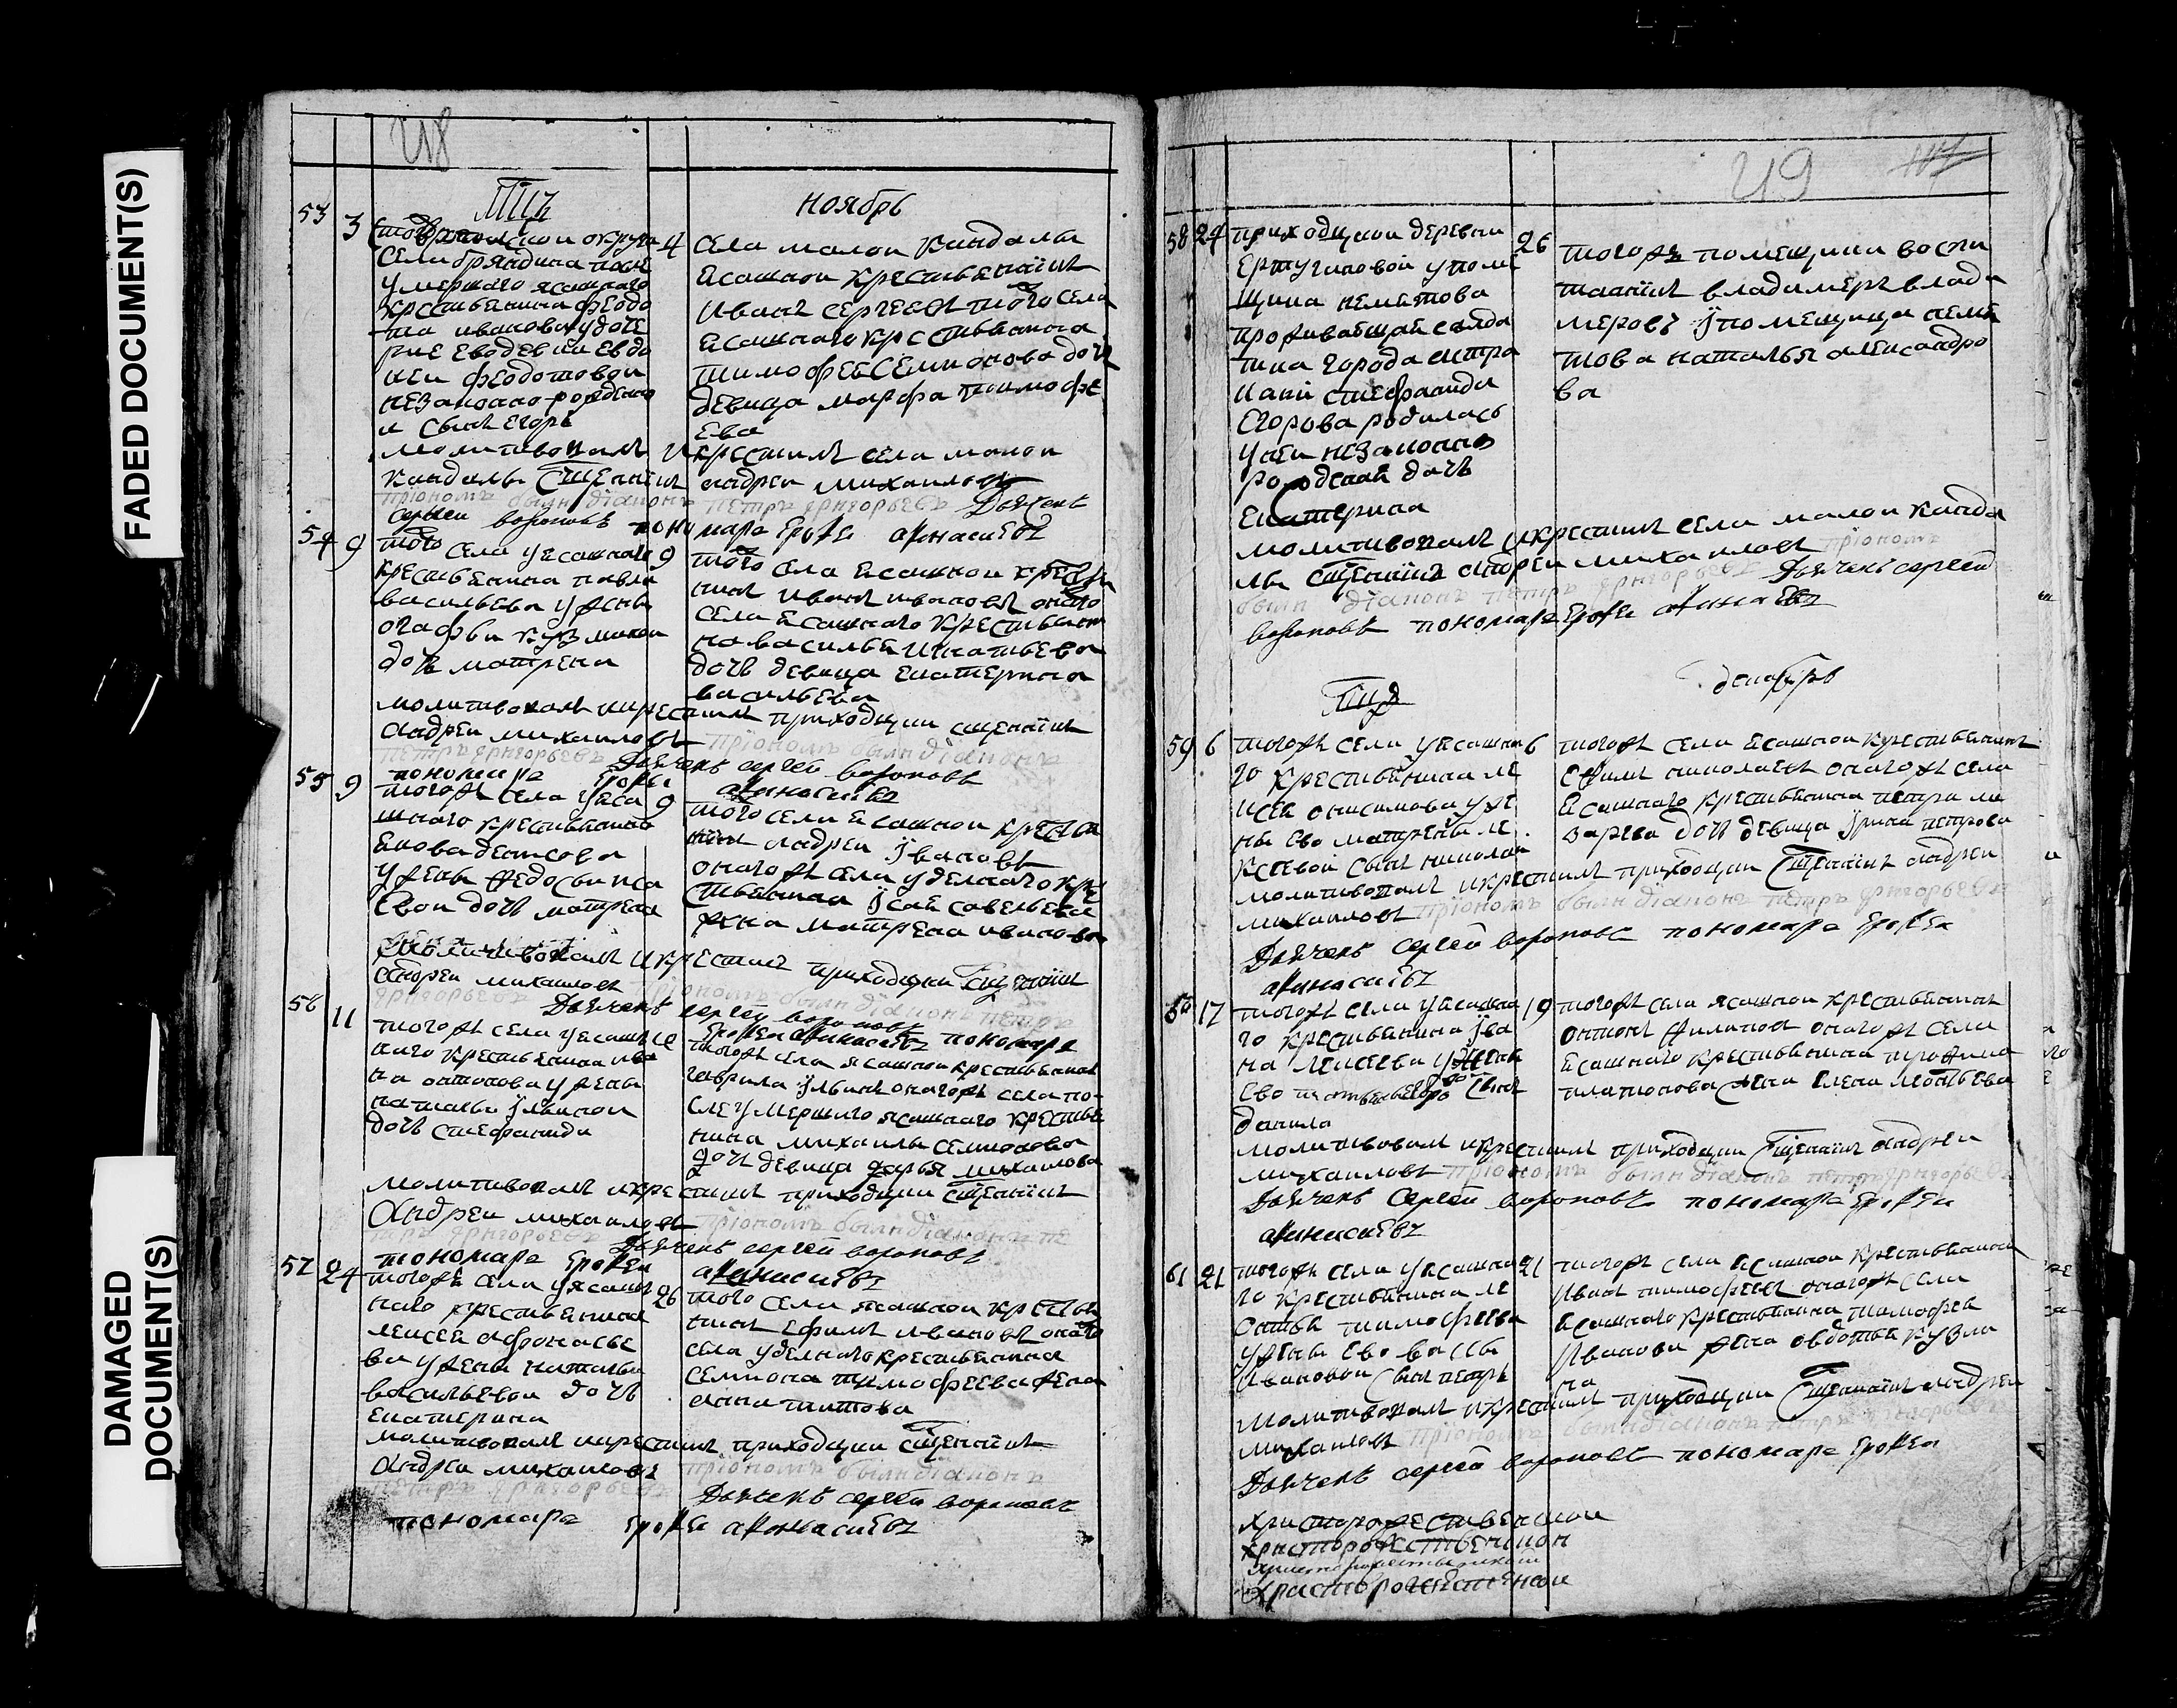 FADED DOCUMENT(S)
DAMAGED DOCUMENT(S)
ноябрь
53
3
села брандина после
умершаго ясашнаго
крестьянина федо
та иванова у доче
ри ево девки евдо
кеи федотовои
незаконно рожденно
и сынъ егоръ
4
села малои кандалы
ясашнои крестьянинъ
иванъ сергеевъ того села
ясашнаго крестьянина
тимофея семионова дочь
девица марфа тимофе
ева
молитвовалъ и крестилъ села малои
кандалы сщенникъ андреи михаиловъ
приномъ были диаконъ петръ григорьевъ дьячекъ
сергеи вороновъ пономаръ ерофеи афонасиевъ
54
9
того села у ясашнаго
крестьянина павла
васильева у жены
огафьи кузминои
дочь матрена
9
того села ясашнои крестья
нинъ иванъ ивановъ онаго
села ясашнаго крестьяни
на василья игнатьева
дочь девица екатерина
васильева
молитвовалъ и крестилъ приходцкии сщенникъ
андреи михаиловъ приномъ были диаконъ
петръ григорьевъ дьячекъ сергеи вороновъ
пономаръ ерофеи афонасиевъ
55
9
тогожъ села у яса
шнаго крестьянина
якова денисова
у жены федосьи иса
евои дочь матрена
9
того села ясашнои крестья
нинъ андреи ивановъ
оногожъ села уделнаго кре
стьянина исая савельева
жена матрена иванова
молитвовалъ и крестилъ приходцкии сщенникъ
андреи михаиловъ приномъ были диаконъ петръ
григорьевъ дьячекъ сергеи вороновъ
ерофеи афонасиевъ пономаръ
56
11
тогожъ села у ясаш
наго крестьянина ива
на антонова у жены
натальи ильинои
дочь стефанида
тогожъ села ясашнои крестьянинъ
гаврила ильинъ оногожъ села по
сле умершаго ясашнаго крестья
нина михаилы семионова
дочь девица дарья михаилова
молитвовалъ и крестилъ приходцкии сщенникъ
андреи михаиловъ приномъ были диаконъ пе
тръ григорьевъ дьячекъ сергеи вороновъ
пономаръ ерофеи афонасиевъ
57
24
тогожъ села у ясаш
наго крестьянина
алексея афонасье
ва у жены натальи
васильевои дочь
екатерина
26
того села ясашнои крестья
нинъ ефимъ ивановъ онаго
села уделнаго крестьянина
семиона тимофеева жена
анна титова
молитвовалъ и крестилъ приходцкии сщенникъ
андреи михаиловъ приномъ были диаконъ
петръ григорьевъ дьячекъ сергеи вороновъ
пономаръ ерофеи афонасиевъ
58
24
приходцкои деревни
ертугановои у поме
щика
проживающая салда
тка города астра
хани стефанида
егорова родилась
у неи незаконно
рожденная дочь
екатерина
26
тогожъ помещика воспи
танникъ владимеръ влади
меровъ и помещица
наталья александро
ва
молитвовалъ и крестилъ села малои канда
лы сщенникъ андреи михаиловъ приномъ
были диаконъ петръ григорьевъ дьячекъ сергеи
вороновъ пономаръ ерофеи афонасиевъ
декабрь
59
6
тогожъ села у ясашна
го крестьянина але
ксея онисимова у же
ны ево матрены але
ксеевои сынъ николаи
6
тогожъ села ясашнои крестьянинъ
ефимъ николаевъ оногожъ села
ясашнаго крестьянина петра ла
зарева дочь девица ирина петрова
молитвовалъ и крестилъ приходцкии сщенникъ андреи
михаиловъ приномъ были диаконъ петръ григорьевъ
дьячекъ сергеи вороновъ пономаръ ерофеи
афонасиевъ
17
тогожъ села у ясашна
го крестьянина ива
на алексеева у жены
ево
сынъ
данила
19
тогожъ села ясашнои крестьянинъ
антонъ филиповъ оногожъ села
ясашнаго крестьянина трофима
платонова жена елена леонтьева
молитвовалъ и крестилъ приходцкии сщенникъ андреи
михаиловъ приномъ были диаконъ петръ григорьевъ
дьячекъ сергеи вороновъ пономаръ ерофеи
афонасиевъ
61
21
тогожъ села у ясашна
го крестьянина ле
онтья тимофеева
у жены ево вассы
ивановои сынъ петръ
21
тогожъ села ясашнои крестьянинъ
иванъ тимофеевъ оногожъ села
ясашнаго крестьянина тимофея
иванова жена овдотья кузми
на
молитвовалъ и крестилъ приходцкии сщенникъ андреи
михаиловъ приномъ были диаконъ петръ григорьевъ
дьячекъ сергеи вороновъ пономаръ ерофеи
христорожественскои
христорожественскои